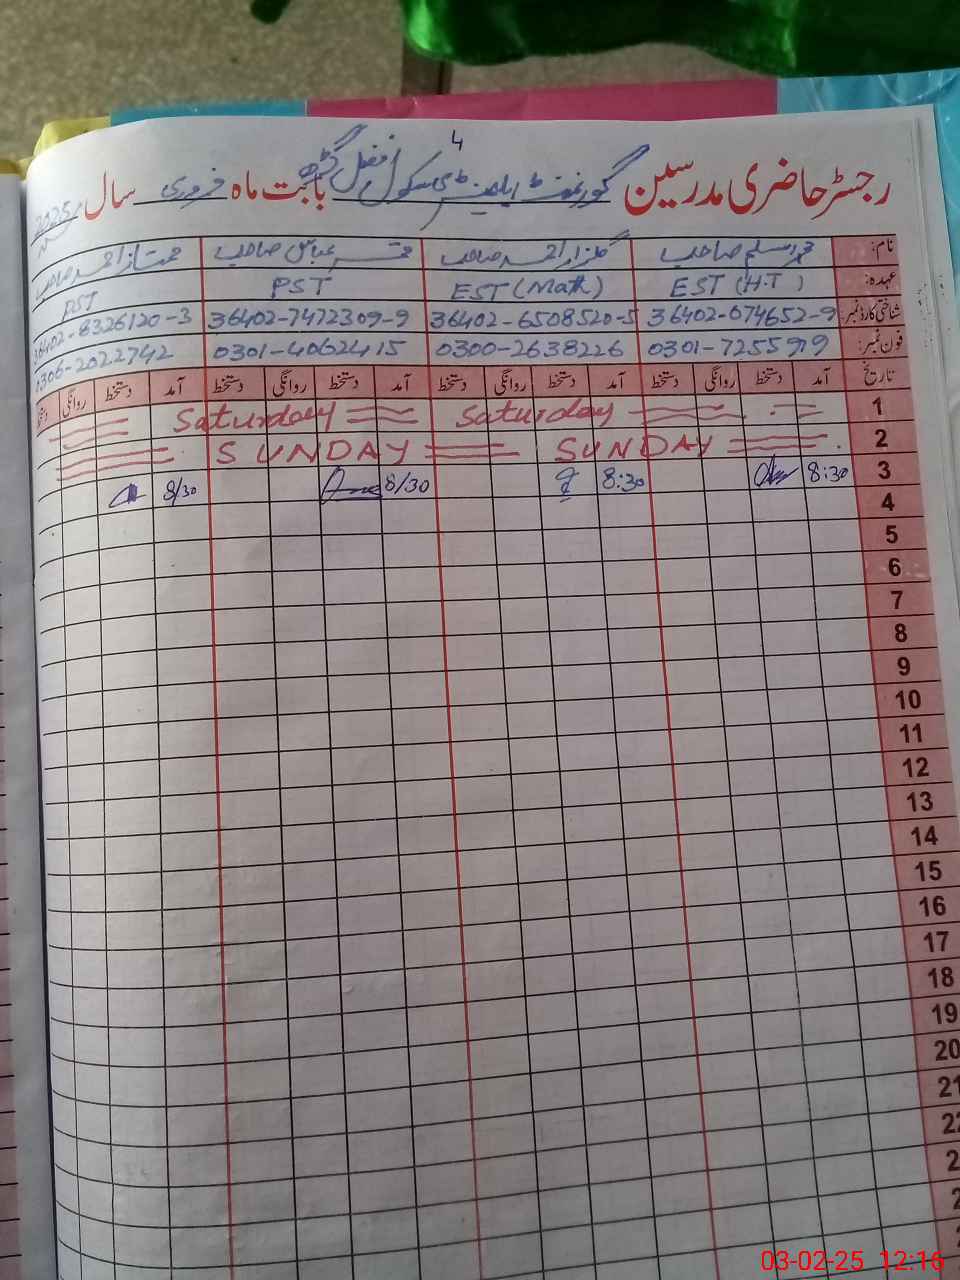 4
رجسٹر حاضری مدرسین گورنمنٹ ایلیمنٹری سکول افضل گڑھ بابت ماہ فروری سال 2025ء
نام: محمد اسلم صاحب گلزار احمد صاحب قمر عباس صاحب ممتاز احمد صاحب
عہدہ: EST (H.T) EST (Math) PST PST
شناختی کارڈ نمبر: 36402-074652-9 36402-6508520-5 36402-7472309-9 36402-8326120-3
فون نمبر: 0300-2638226 0301-4062415 0306-2022742
تاریخ آمد دستخط روانگی دستخط آمد دستخط روانگی دستخط آمد دستخط روانگی دستخط آمد دستخط روانگی دستخط
1 Saturday Saturday
2 SUNDAY SUNDAY
3 8:30 8:30 8/30 8/30
4
5
6
7
8
9
10
11
12
13
14
15
16
17
18
19
20
21
22
03-02-25 12:16